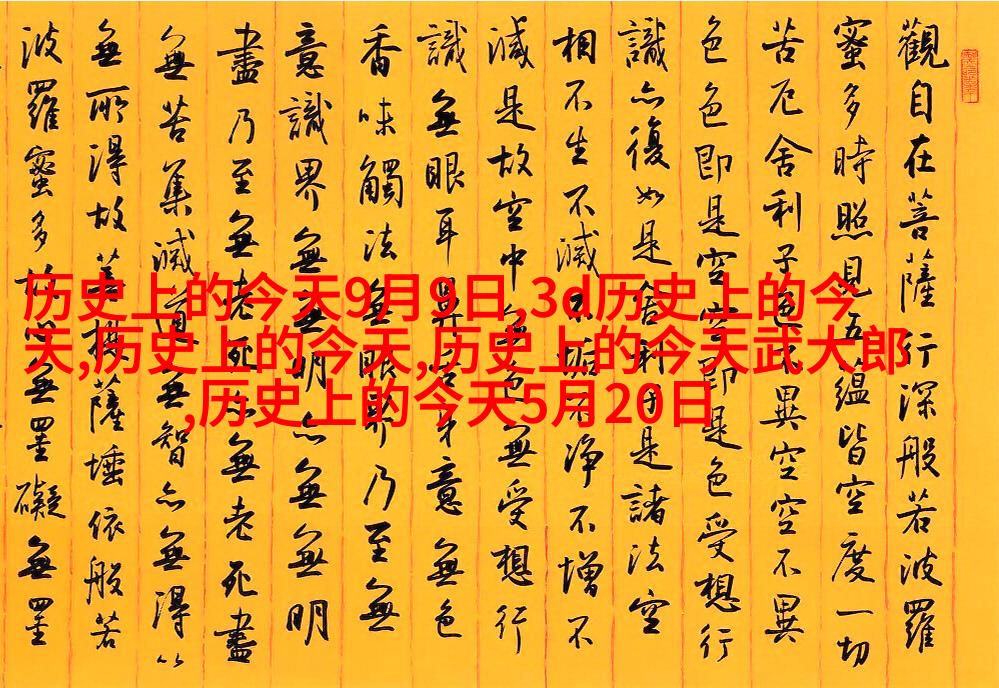 觀自在菩薩行深般若波羅
蜜多時照見五蘊皆空度一切
苦厄舍利子色不異空空不異
色色即是空空即是色受想行
識亦復如是舍利子是諸法空
相不生不滅不垢不淨不增不
減是故空中無色無受想行
識無眼耳鼻舌身意無色
香味觸法無眼界乃至無
意識界無無明亦無無明
盡乃至無老死亦無老死盡
無苦集滅道無智亦無得以
無所得故菩提薩埵依般若
波羅蜜多故心無罣礙無罣
历史上的今天9月9日,3d历史上的今
天,历史上的今天,历史上的今天武大郎
,历史上的今天5月20日